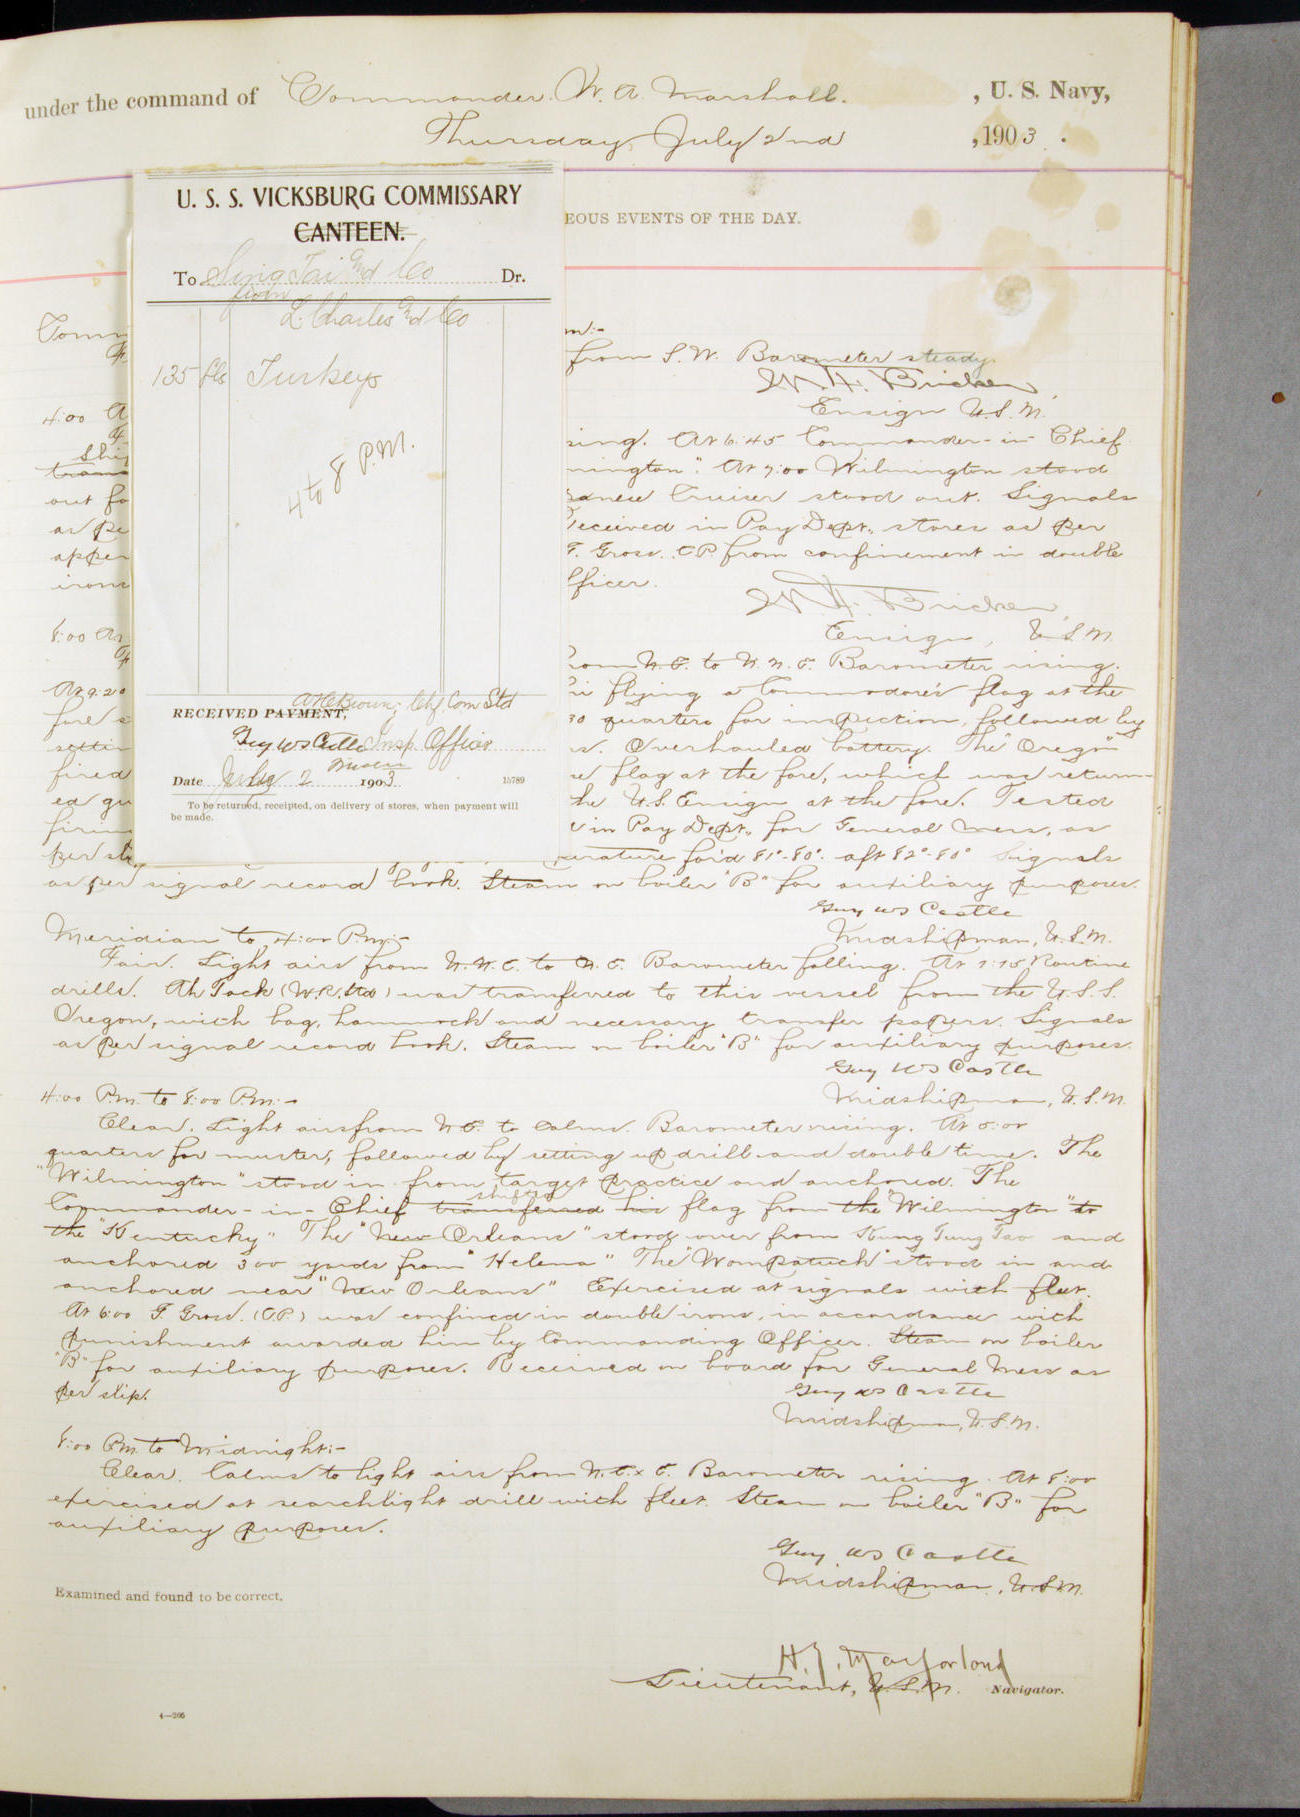 under the command of Commander W. A. Marshall. , U. S. Navy,
Thursday July 2nd , 1903 .
EOUS EVENTS OF THE DAY.
U. S. S. VICKSBURG COMMISSARY
CANTEEN.
To Sing Tai and Co Dr.
from
L. Charles and Co
135 lbs Turkeys
4 to 8 P.M.
Chf. Com Std
RECEIVED PAYMENT,
Guy WS Castle Insp. Officer
Date July 2 1903 15789
To be returned, receipted, on delivery of stores, when payment will
be made.
from S.W. Barometer steady.
W. H. Bricken,
Ensign U.S.N.
4:00 A
ing. At 6:45 Commander-in-Chief
mington". At 7:00 Wilmington stood
out fo anese Cruiser stood out. Signals
as pe Received in Pay Dept., stores as per
appen F. Gross. C.P. from confinement in double
irons fficer.
W. H. Bricken,
Ensign, U.S.N.
8:00 A
rom N.E. to N.N.E. Barometer rising.
At 9:20 flying a Commodore's flag at the
fore 30 quarters for inspection, followed by
settin s. Overhauled battery. The "Oregon"
fired e flag at the fore, which was return-
ed gu he U.S. Ensign at the fore. Tested
firin in Pay Dept., for General Mess, as
per sl erature for'd 81°-80°. aft 82°-80° Signals
as per signal record book. Steam on boiler "B" for auxiliary purposes.
Guy WS Castle
Midshipman, U.S.N.
Meridian to 4:00 P.M:-
Fair. Light airs from N.N.E. to N.E. Barometer falling. At 1:15 Routine
drills. Ah Jack (W.R. Std) was transferred to this vessel from the U.S.S.
Oregon, with bag, hammock and necessary transfer papers. Signals
as per signal record book. Steam on boiler "B" for auxiliary purposes.
Guy WS Castle
Midshipman, U.S.N.
4:00 P.M. to 8:00 P.M:-
Clear. Light airs from N.E. to Calms. Barometer rising. At 5:00
quarters for muster, followed by setting up drill and double time. The
"Wilmington" stood in from target practice and anchored. The
shifted
Commander-in-Chief transferred his flag from the "Wilmington" to
the "Kentucky". The "New Orleans" stood over from Kung Tung Tao and
anchored 300 yards from "Helena" The "Wompatuck" stood in and
anchored near "New Orleans" Exercised at signals with fleet.
At 6:00 F. Gross. (C.P.) was confined in double irons, in accordance with
punishment awarded him by Commanding Officer. Steam on boiler
"B" for auxiliary purposes. Received on board for General Mess as
per slip.
Guy WS Castle
Midshipman, U.S.N.
8:00 P.M. to Midnight:-
Clear. Calms to light airs from N.E. x E. Barometer rising. At 8:00
exercised at searchlight drill with fleet. Steam on boiler "B" for
auxiliary purposes.
Guy WS Castle
Midshipman, U.S.N.
Examined and found to be correct.
Lieutenant, U.S.N. Navigator.
4—206